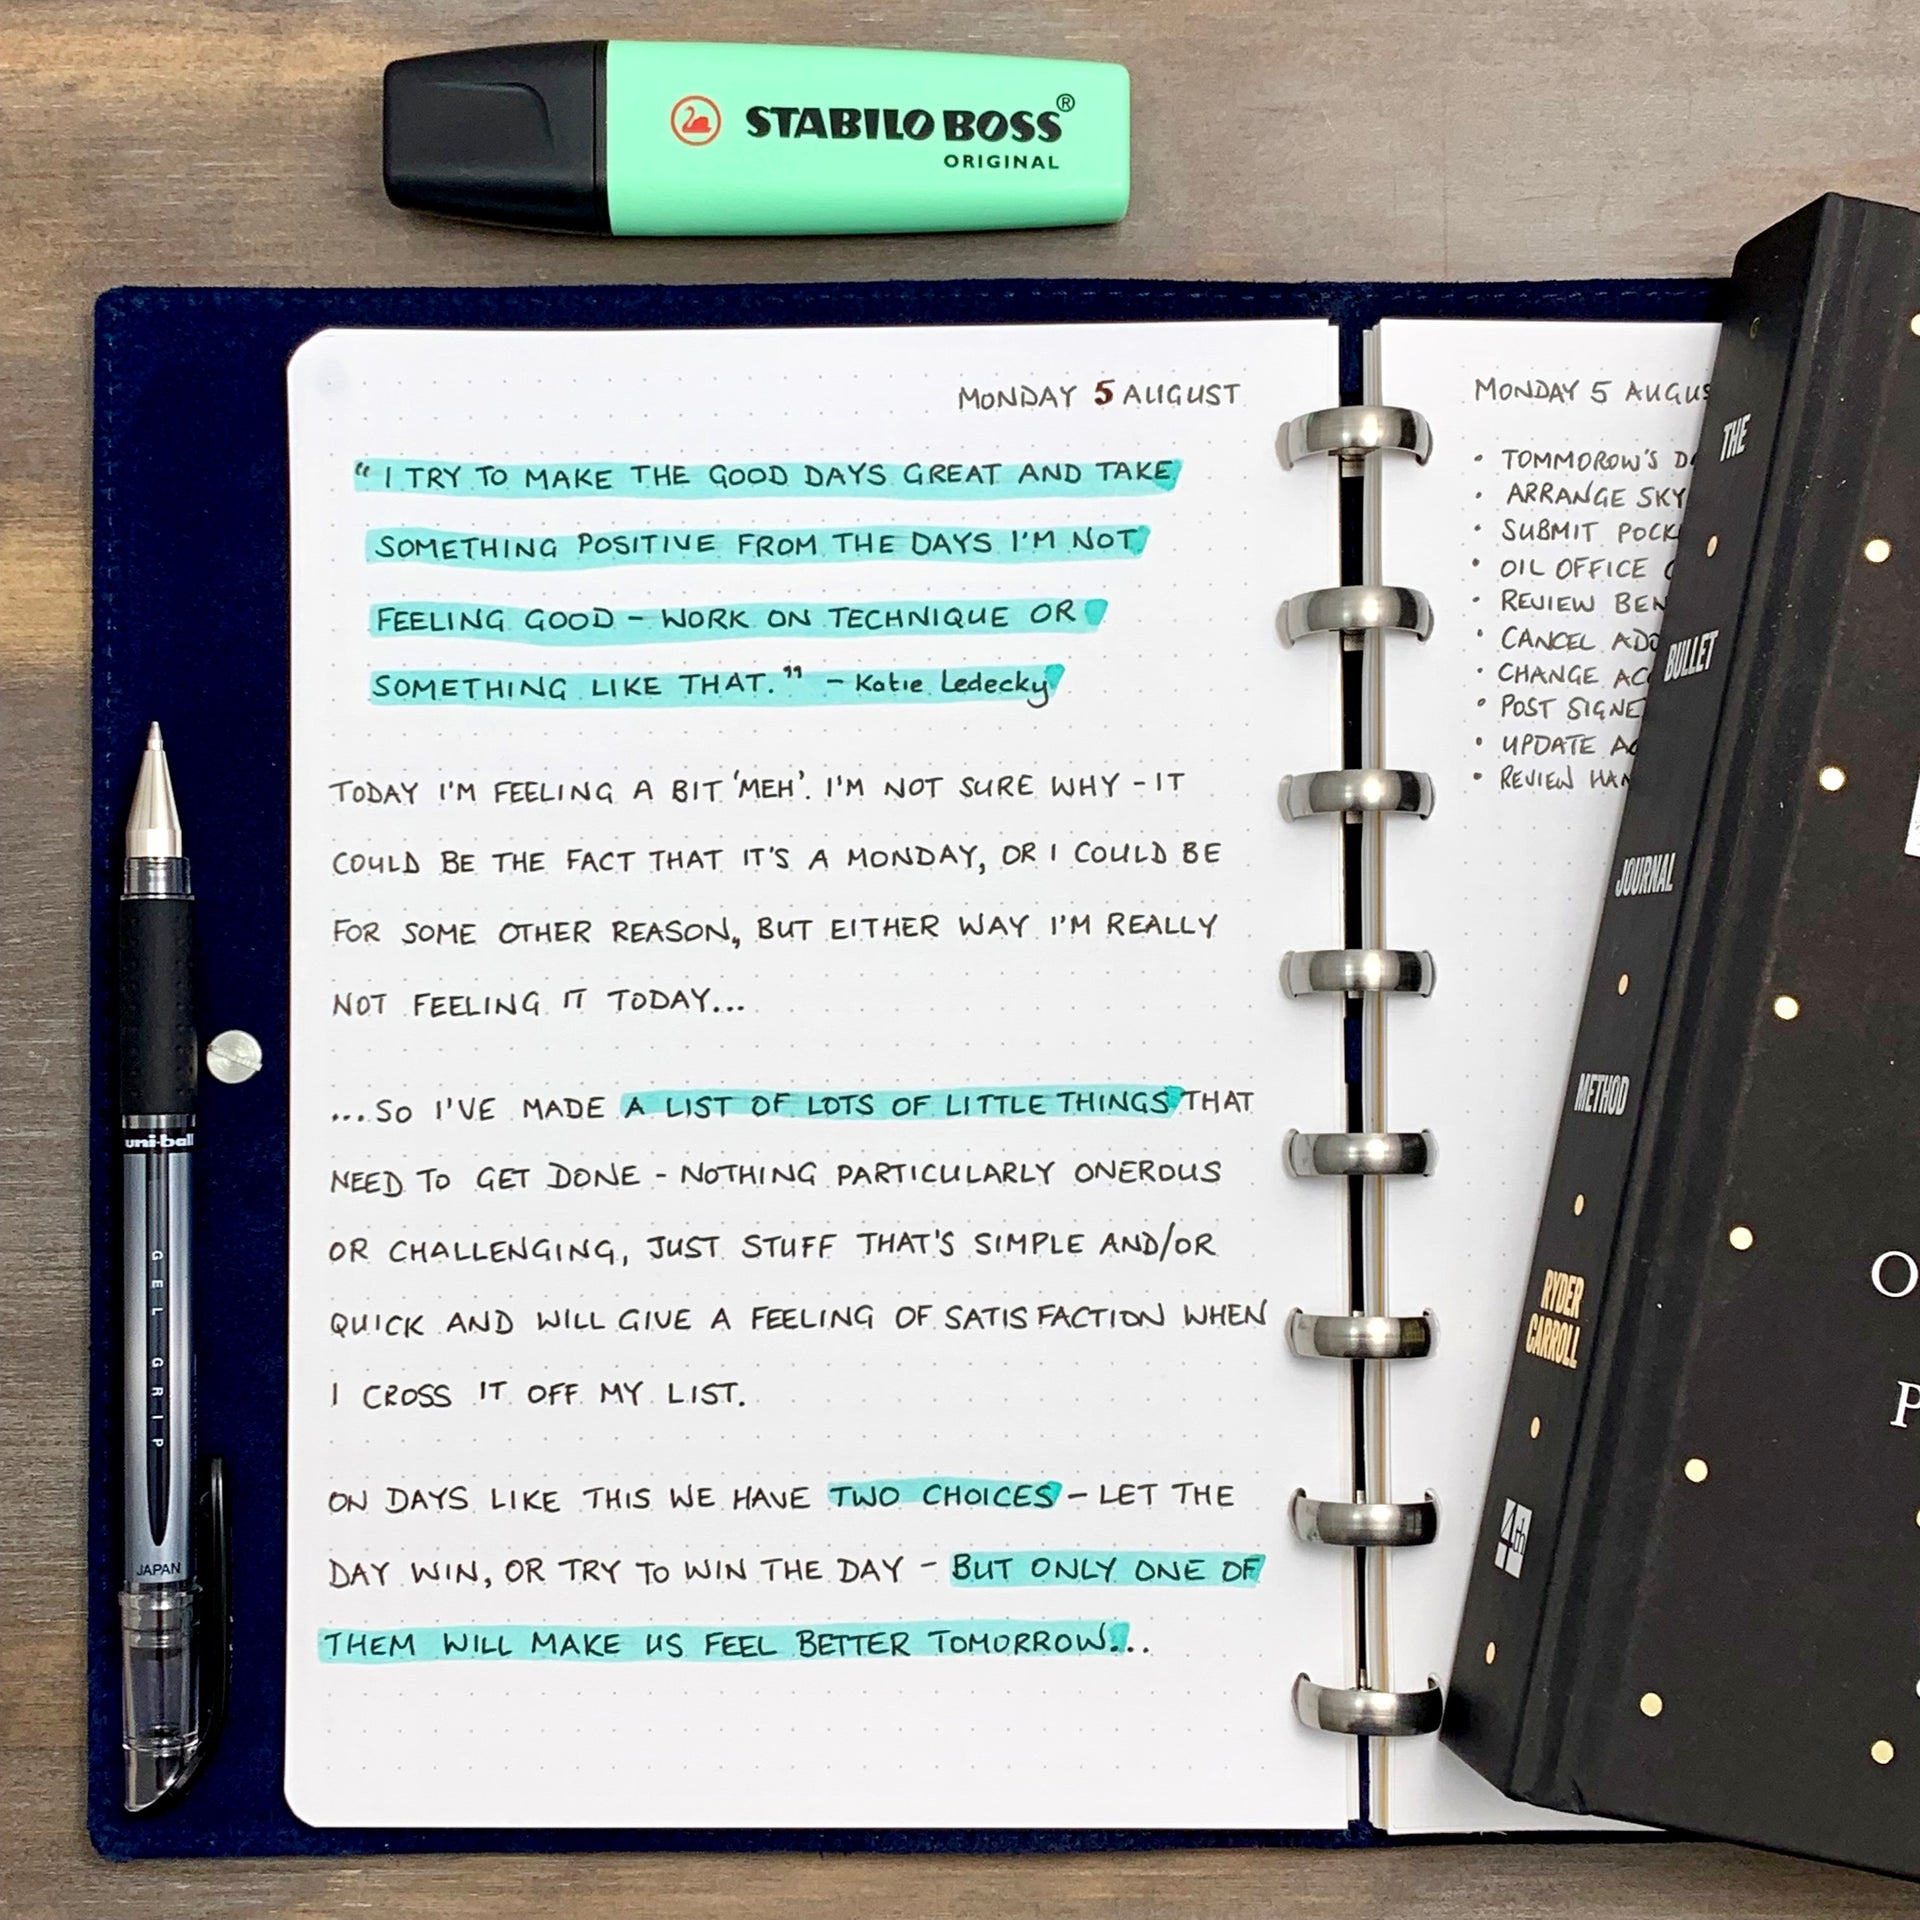 STABILO BOSS®
ORIGINAL
MONDAY 5 AUGUST
“I TRY TO MAKE THE GOOD DAYS GREAT AND TAKE
SOMETHING POSITIVE FROM THE DAYS I'M NOT
FEELING GOOD – WORK ON TECHNIQUE OR
SOMETHING LIKE THAT.” – Katie Ledecky
TODAY I'M FEELING A BIT ‘MEH’. I'M NOT SURE WHY – IT
COULD BE THE FACT THAT IT'S A MONDAY, OR I COULD BE
FOR SOME OTHER REASON, BUT EITHER WAY I'M REALLY
NOT FEELING IT TODAY...
...SO I'VE MADE A LIST OF LOTS OF LITTLE THINGS THAT
NEED TO GET DONE – NOTHING PARTICULARLY ONEROUS
OR CHALLENGING, JUST STUFF THAT'S SIMPLE AND/OR
QUICK AND WILL GIVE A FEELING OF SATISFACTION WHEN
I CROSS IT OFF MY LIST.
ON DAYS LIKE THIS WE HAVE TWO CHOICES – LET THE
DAY WIN, OR TRY TO WIN THE DAY – BUT ONLY ONE OF
THEM WILL MAKE US FEEL BETTER TOMORROW...
MONDAY 5 AUGUS
• TOMMOROW'S D
• ARRANGE SKY
• SUBMIT POCK
• OIL OFFICE
• REVIEW BEN
• CANCEL ADO
• CHANGE AC
• POST SIGNE
• UPDATE AC
• REVIEW HAN
uni-ball
GEL GRIP
JAPAN
THE BULLET JOURNAL METHOD
RYDER
CARROLL
4th
O
P